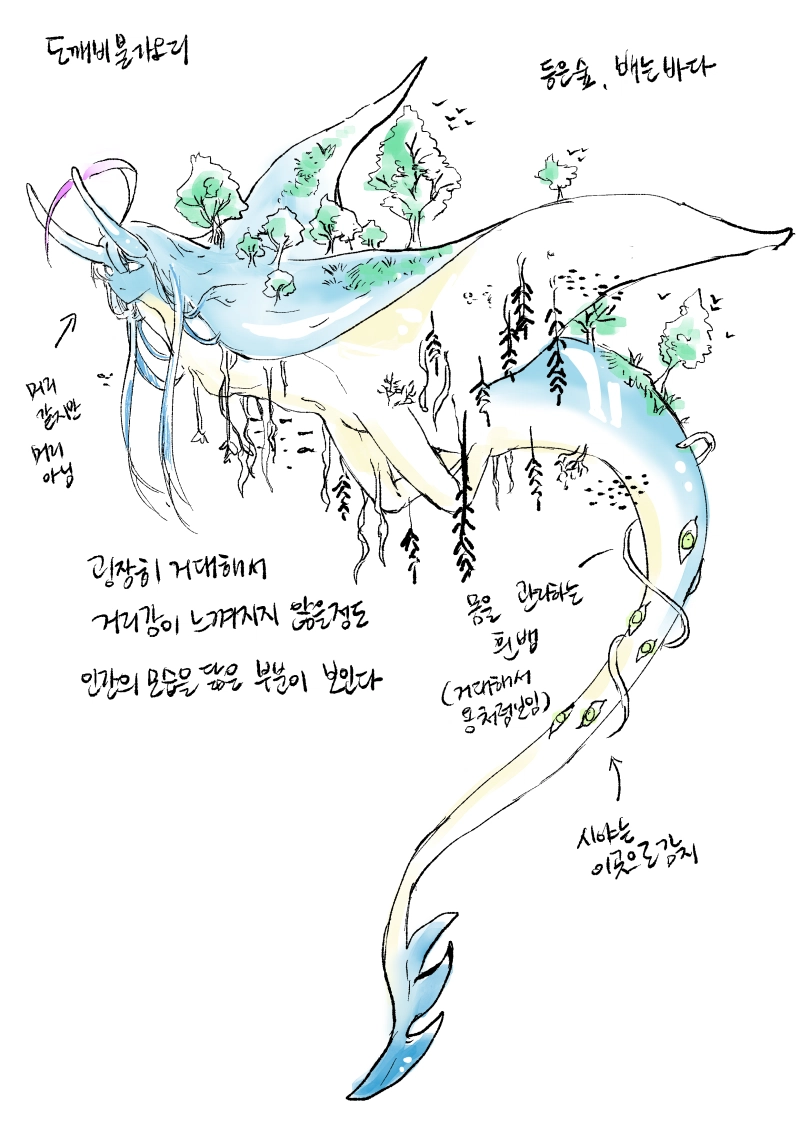 도깨비불가오리
등은숲, 배는바다
머리
같지만
머리
아님
굉장히 거대해서
거리감이 느껴지지 않을정도
인간의 모습을 닮은 부분이 보인다
몸을 관리하는
흰뱀
(거대해서
용처럼보임)
시야는
이곳으로감지